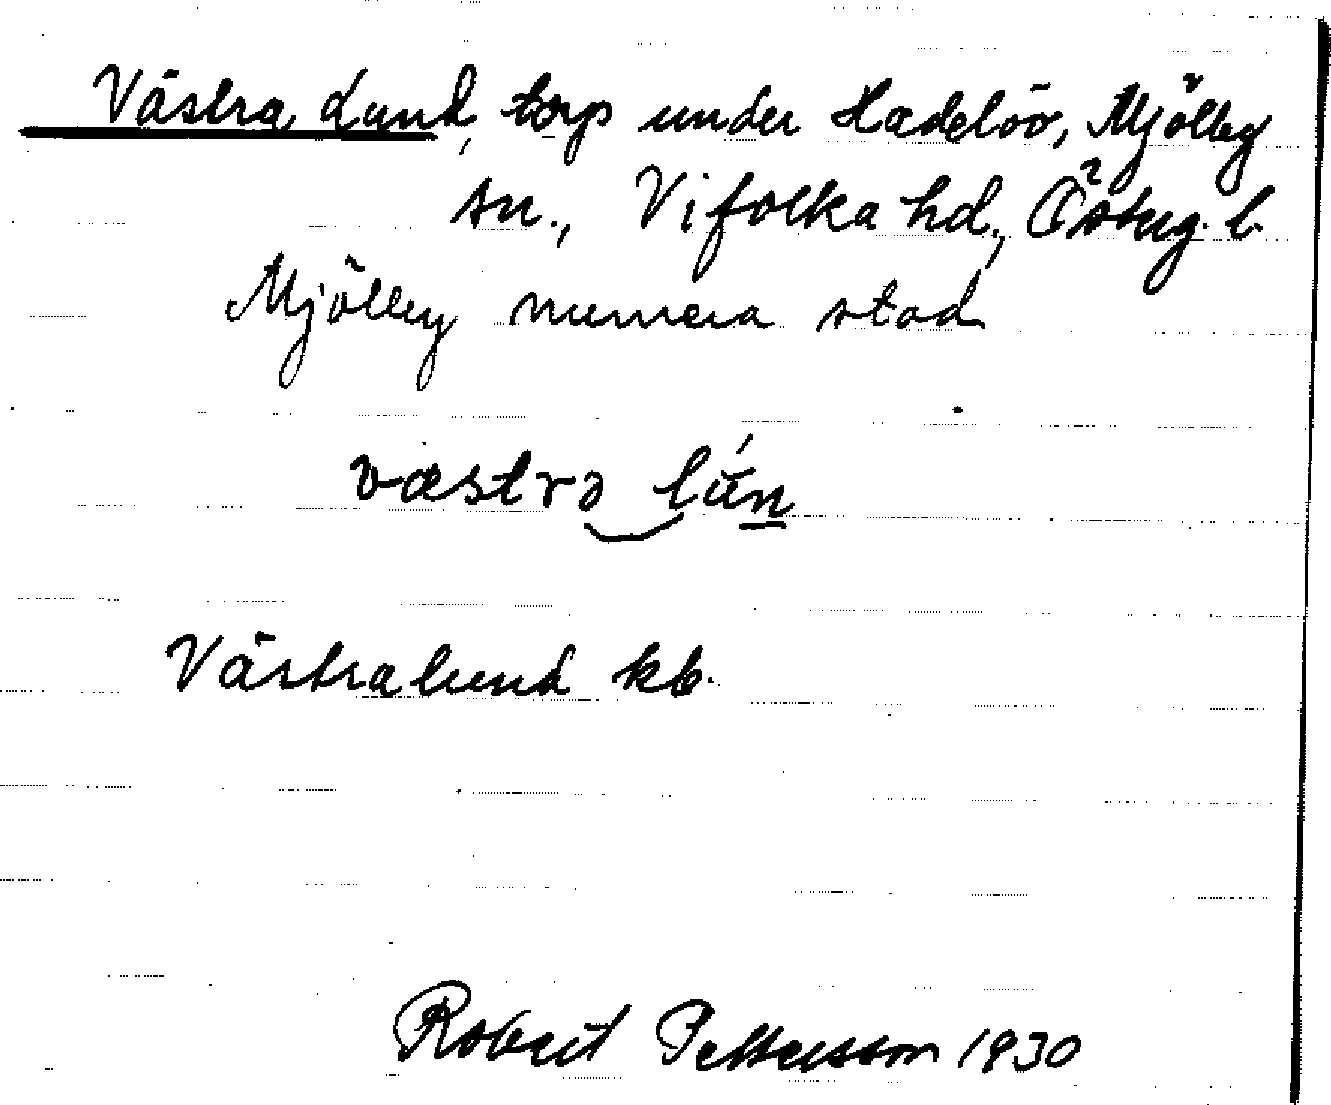 Västra Lund, torp under Hadelöv, Mjölby
sn., Vifolka hd., Östg. l.
Mjölby numera stad
västrə lún
Västralund kb.
Robert Pettersson 1930